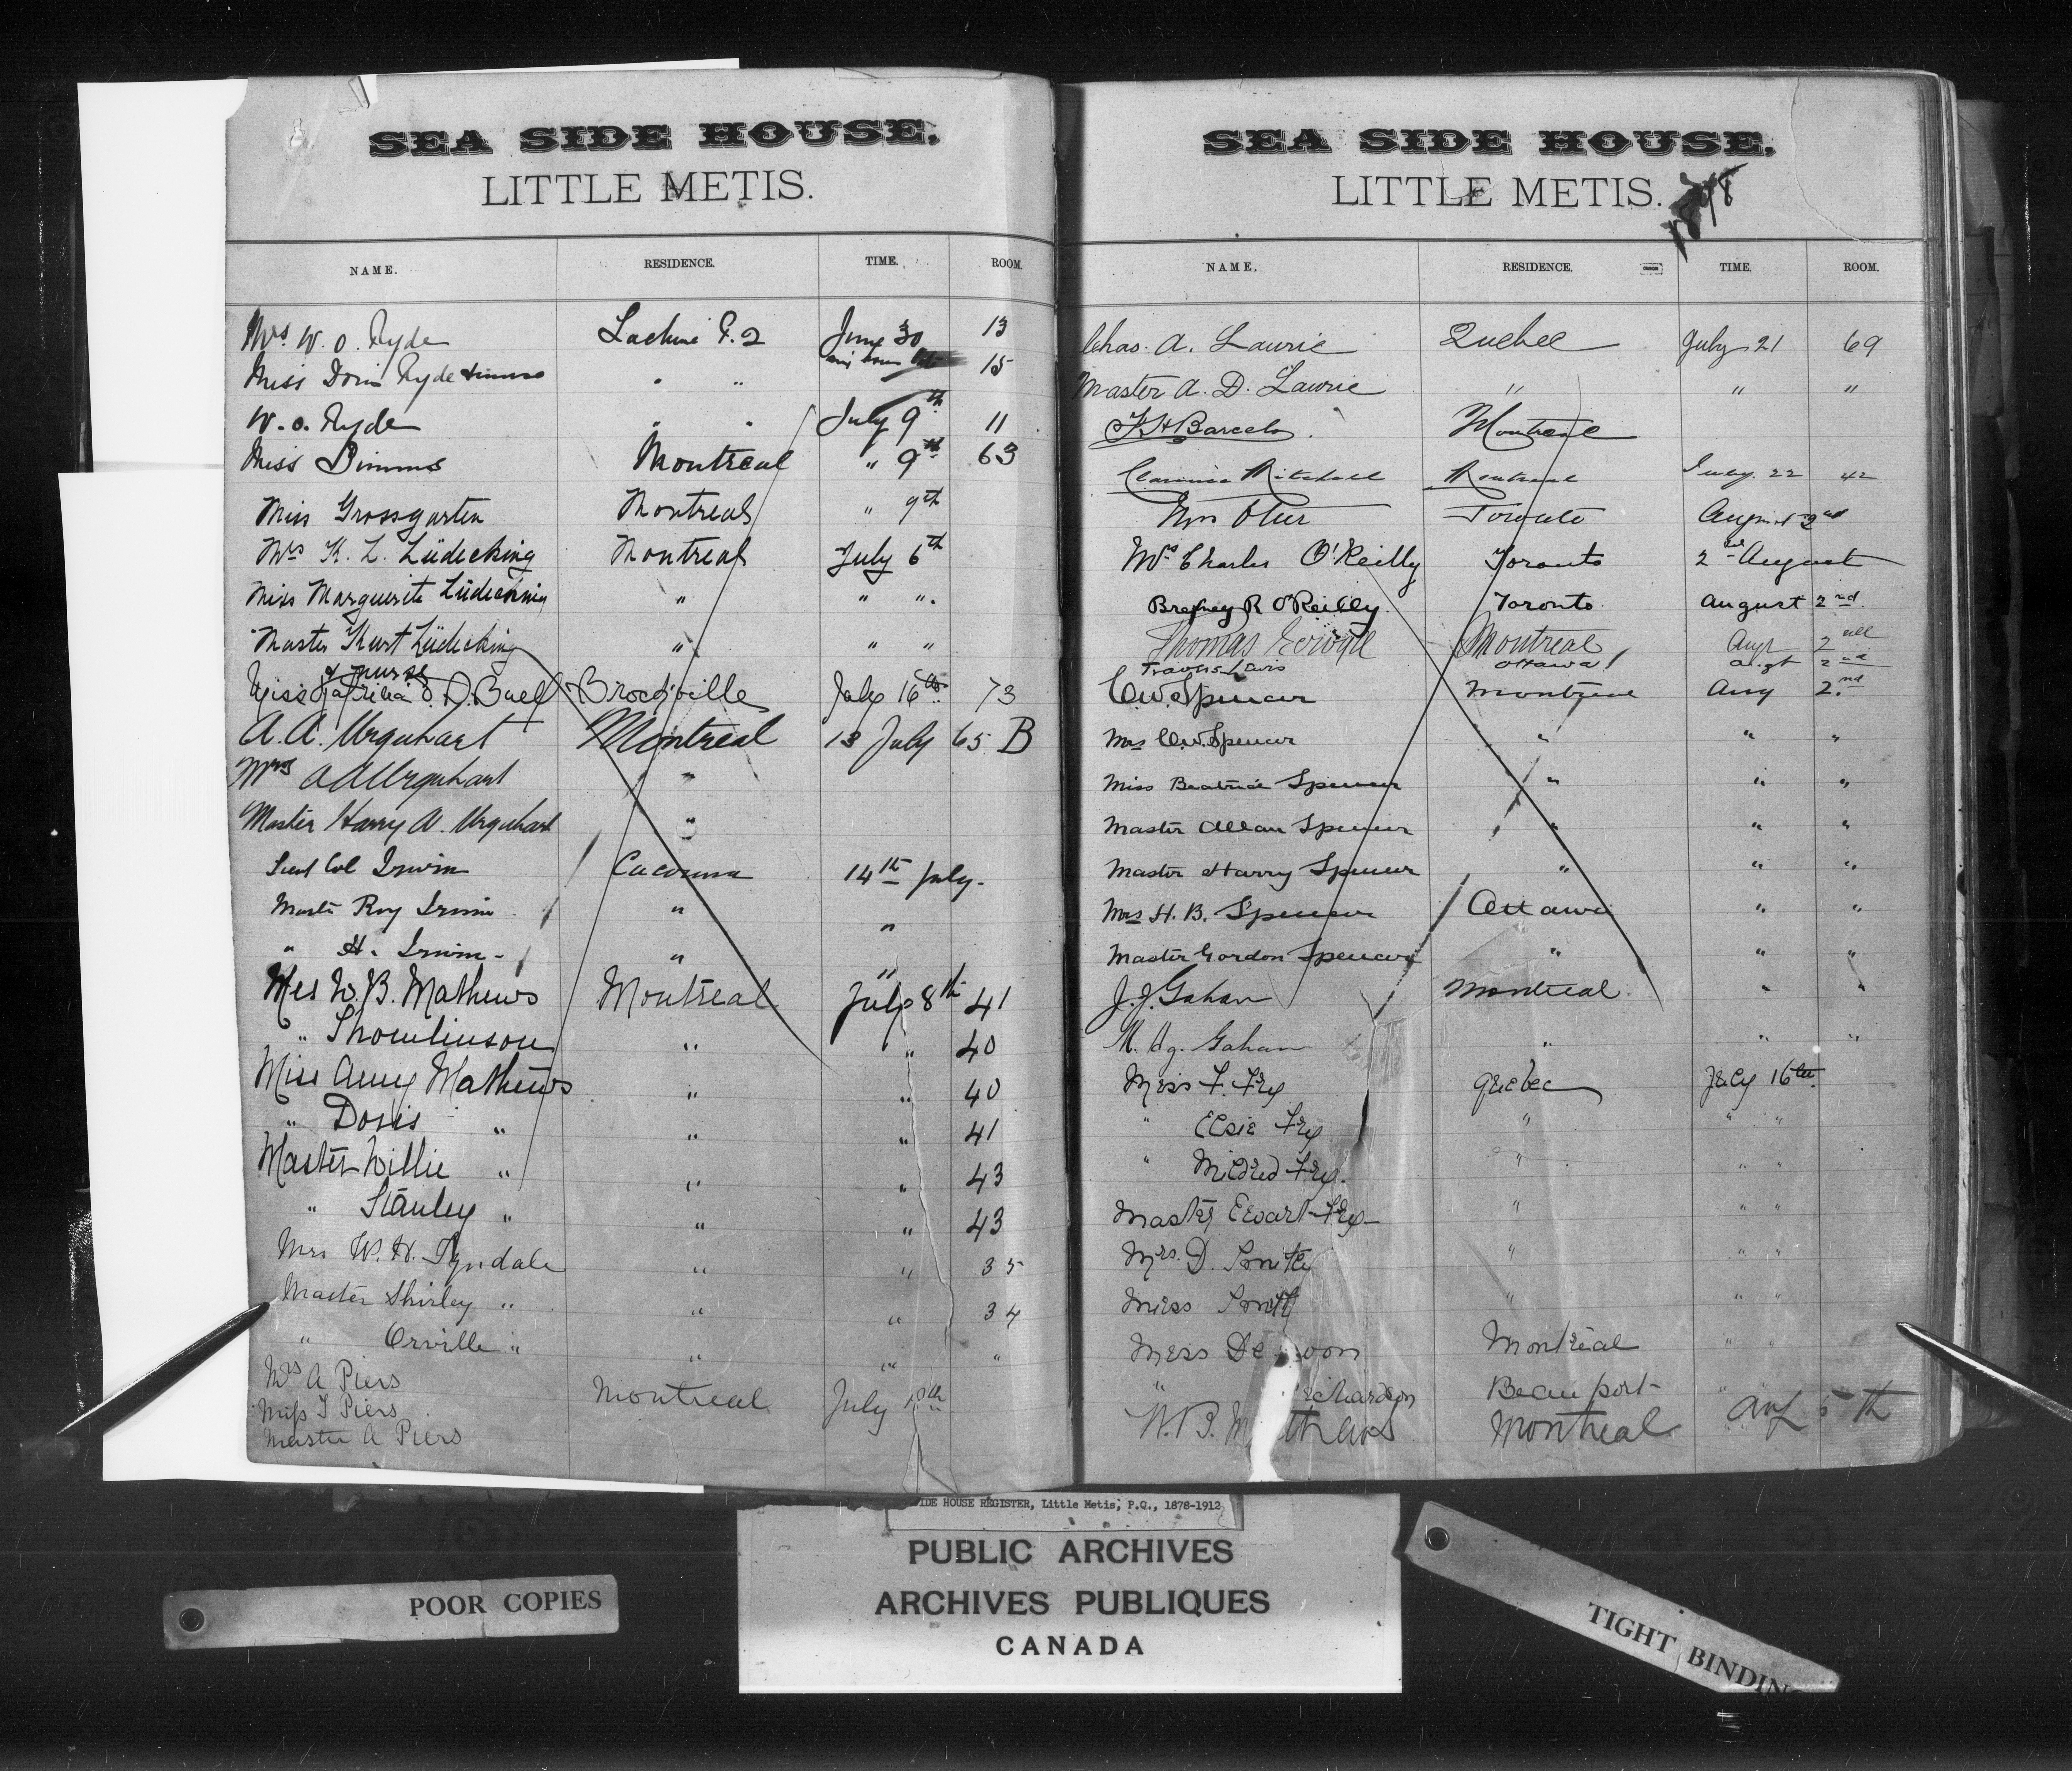 SEA SIDE HOUSE,
LITTLE METIS.
NAME. RESIDENCE. TIME. ROOM.
Mrs. W. O. Ryde Lachine P. Q June 30 13
Miss Doris Ryde & nurse " " 15
W. O. Ryde " " July 9th 11
Miss Simms Montreal " 9th 63
Miss Grossgarten Montreal " 9th
Mrs K. L. Lüdecking Montreal July 6th
Miss Marguerite Lüdecking " " ".
Master Kurt Lüdecking " " "
& nurse
Miss Buell Brockville July 16th 73
A. A. Urquhart Montreal 13 July 65 B
Mrs A A Urquhart "
Master Harry A. Urquhart "
Lieut Col Irwin Cacouna 14th July.
Master Roy Irwin " "
" H. Irwin - " "
Mrs W. B. Mathews Montreal July 8th 41
" Thomlinson " " 40
Miss Amy Mathews " " 40
" Doris " " " 41
Master Willie " " " 43
" Stanley " " " 43
Mrs W. H. Tyndale " " 35
Master Shirley " " " 34
" Orville " " " "
Mrs A Piers
Miss T Piers Montreal July
Master A Piers
SEA SIDE HOUSE,
LITTLE METIS. 1898
NAME. RESIDENCE. TIME. ROOM.
Chas. A. Lawrie Quebec July 21 69
Master A. D. Lawrie " " "
F H Barcelo. Montreal
Mitchell Montreal July. 22 42
Mrs Otter Toronto August 2nd
Mrs Charles O'Reilly Toronto 2nd August
Brefney R O'Reilly. Toronto. August 2nd.
Thomas Montreal Aug
Travers Lewis Ottawa Augt 2nd
C. W. Spencer Montreal Aug 2nd
Mrs C. W. Spencer " " "
Miss Beatrice Spencer " " "
Master Allan Spencer " " "
Master Harry Spencer " " "
Mrs H. B. Spencer Ottawa " "
Master Gordon Spencer " " "
J. J. Gahan Montreal " "
Gahan " " "
Miss F. Fry Quebec July 16th.
" Elsie Fry " " "
" Mildred Fry. " " "
Master Ewart Fry " " "
Mrs. D. Smith " " "
Miss Smith " " "
Miss De Montreal " "
" Beauport " "
W. B. Montreal Aug 5th
SIDE HOUSE REGISTER, Little Metis, P.Q., 1878-1912
PUBLIC ARCHIVES
ARCHIVES PUBLIQUES
CANADA
POOR COPIES
TIGHT BINDING